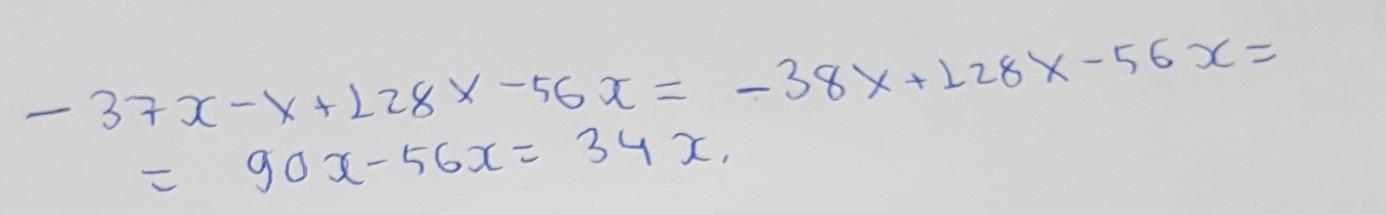 -37x-x+128x-56x= -38x+128x-56x=
= 90x-56x= 34x.